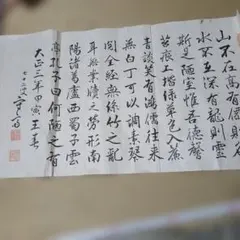 山不在高有僊則名
水不在深有龍則靈
斯是陋室惟吾德馨
苔痕上階綠草色入簾
青談笑有鴻儒往來
無白丁可以調素琴
閱金經無絲竹之亂
耳無案牘之勞形南
陽諸葛廬西蜀子雲
亭孔子曰何陋之有
大正三年甲寅王春